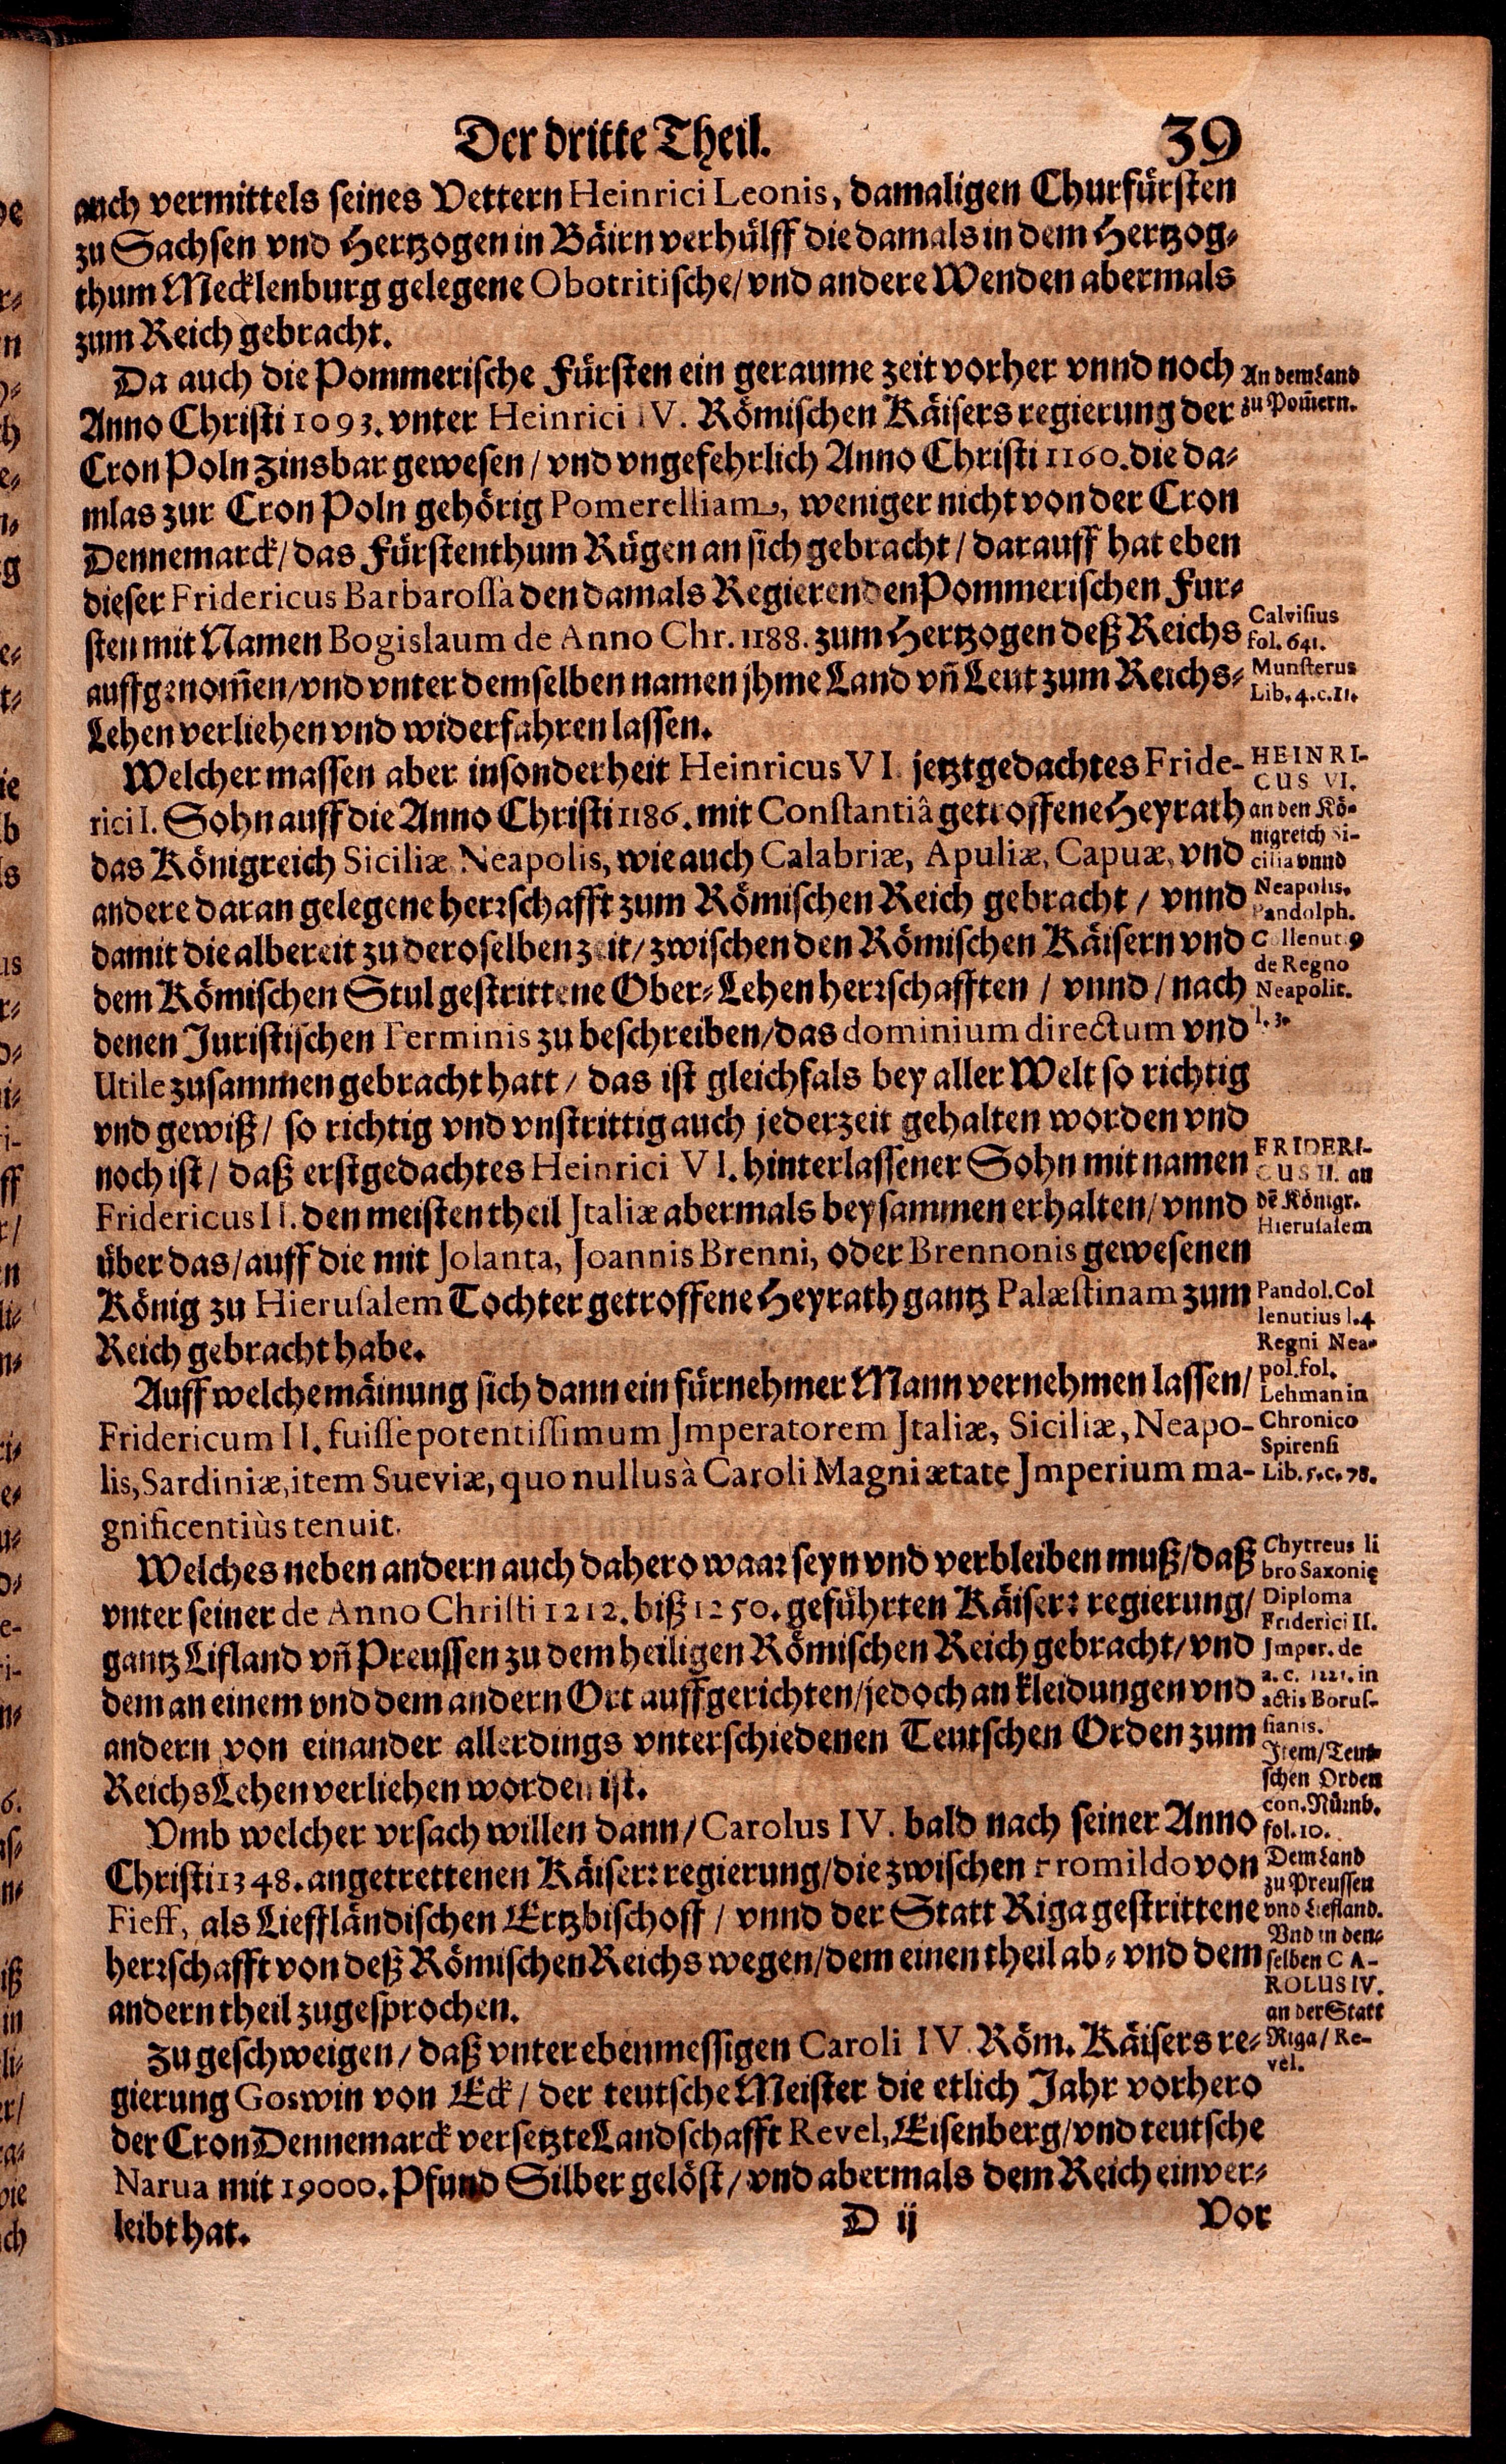 Der dritte Theil.
39
auch vermittels seines Vettern Heinrici Leonis, damaligen Churfürsten
zu Sachsen vnd Hertzogen in Bäirn verhülff die damals in dem Hertzog-
thum Mecklenburg gelegene Obotritische/ vnd andere Wenden abermals
zum Reich gebracht.
Da auch die Pommerische Fürsten ein geraume zeit vorher vnnd noch
Anno Christi 1093. vnter Heinrici IV. Römischen Käisers regierung der
Cron Poln zinsbar gewesen / vnd vngefehrlich Anno Christi 1160. die da-
mlas zur Cron Poln gehörig Pomerelliam, weniger nicht von der Cron
Dennemarck/ das Fürstenthum Rügen an sich gebracht / darauff hat eben
dieser Fridericus Barbarossà den damals Regierenden Pommerischen Fur-
sten mit Namen Bogislaum de Anno Chr. 1188. zum Hertzogen deß Reichs
auffgenom̃en/ vnd vnter demselben namen jhme Land vñ Leut zum Reichs-
Lehen verliehen vnd widerfahren lassen.
Welcher massen aber insonderheit Heinricus VI. jetztgedachtes Fride-
rici I. Sohn auff die Anno Christi 1186. mit Constantiâ getroffene Heyrath
das Königreich Siciliæ Neapolis, wie auch Calabriæ, Apuliæ, Capuæ, vnd
andere daran gelegene herꝛschafft zum Römischen Reich gebracht / vnnd
damit die albereit zu deroselben zeit/ zwischen den Römischen Käisern vnd
dem Römischen Stul gestrittene Ober-Lehen herꝛschafften / vnnd / nach
denen Juristischen Terminis zu beschreiben/ das dominium directum vnd
Utile zusammen gebracht hatt / das ist gleichfals bey aller Welt so richtig
vnd gewiß / so richtig vnd vnstrittig auch jederzeit gehalten worden vnd
noch ist / daß erstgedachtes Heinrici VI. hinterlassener Sohn mit namen
Fridericus II. den meisten theil Jtaliæ abermals beysammen erhalten/ vnnd
über das/ auff die mit Jolanta, Joannis Brenni, oder Brennonis gewesenen
König zu Hierusalem Tochter getroffene Heyrath gantz Palæstinam zum
Reich gebracht habe.
Auff welche mäinung sich dann ein fürnehmer Mann vernehmen lassen/
Fridericum II. fuisse potentissimum Jmperatorem Jtaliæ, Siciliæ, Neapo-
lis, Sardiniæ, item Sueviæ, quo nullus à Caroli Magni ætate Jmperium ma-
gnificentiùs tenuit.
Welches neben andern auch dahero waaꝛ seyn vnd verbleiben muß/ daß
vnter seiner de Anno Christi 1212. biß 1250. geführten Käiserꝛ regierung/
gantz Lifland vñ Preussen zu dem heiligen Römischen Reich gebracht/ vnd
dem an einem vnd dem andern Ort auffgerichten/ jedoch an kleidungen vnd
andern von einander allerdings vnterschiedenen Teutschen Orden zum
Reichs Lehen verliehen worden ist.
Vmb welcher vrsach willen dann / Carolus IV. bald nach seiner Anno
Christi 1348. angetrettenen Käiserꝛ regierung/ die zwischen Fromildo von
Fieff, als Liefländischen Ertzbischoff / vnnd der Statt Riga gestrittene
herꝛschafft von deß Römischen Reichs wegen/ dem einen theil ab- vnd dem
andern theil zugesprochen.
Zu geschweigen / daß vnter ebenmessigen Caroli IV. Röm. Käisers re-
gierung Goswin von Eck / der teutsche Meister die etlich Jahr vorhero
der Cron Dennemarck versetzte Landschafft Revel, Eisenberg/ vnd teutsche
Narua mit 19000. Pfund Silber gelöst / vnd abermals dem Reich einver-
leibt hat.
D ij
Vor
An dem Land
zu Pom̃ern.
Calvisius
fol. 641.
Munsterus
Lib. 4. c. 11.
HEINRI-
CUS VI.
an den Kö-
nigreich Si-
cilia vnnd
Neapolis.
Pandolph.
Collenut9
de Regno
Neapolit.
l. 3.
FRIDERI-
CUS II. an
dẽ Königr.
Hierusalem
Pandol. Col
lenutius l. 4
Regni Nea-
pol. fol.
Lehman in
Chronico
Spirensi
Lib. 5. c. 78.
Chytreus li
bro Saxonię
Diploma
Friderici II.
Jmper. de
a. c. 1221. in
actis Borus-
sianis.
Jtem/ Teut-
schen Orden
con. Nürnb.
fol. 10.
Dem Land
zu Preussen
vnd Liefland.
Vnd in den-
selben CA-
ROLUS IV.
an der Statt
Riga / Re-
vel.